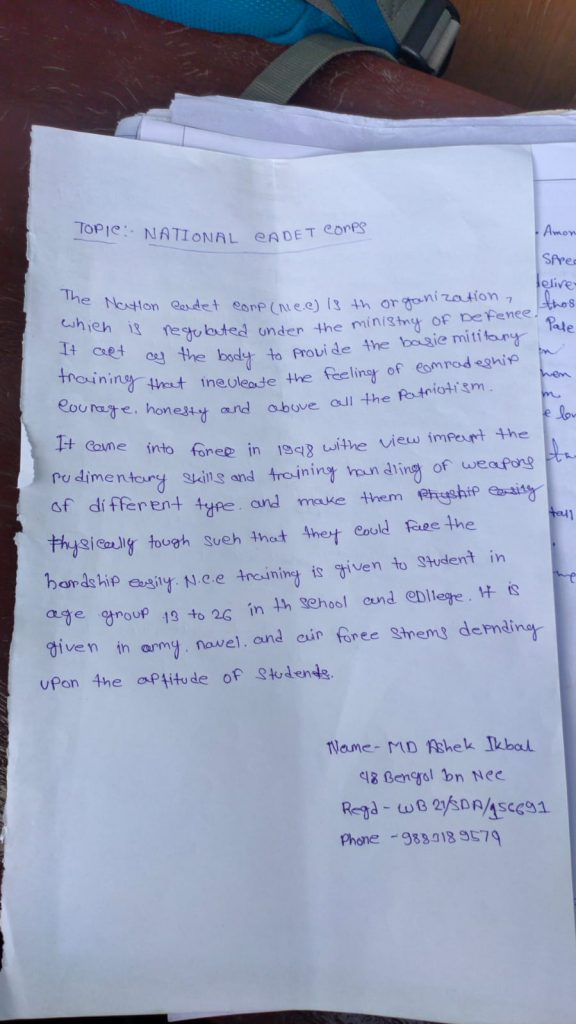 TOPIC:- NATIONAL CADET CORPS
The Nation cadet corp (N.C.C) is th organization,
which is regulated under the ministry of Defence.
It act as the body to provide the basic military
training that inculcate the feeling of comradeship
courage, honesty and above all the patriotism.
It came into force in 1948 withe view impart the
rudimentary skills and training handling of weapons
of different type. and make them
physically tough such that they could face the
hardship easily. N.C.C training is given to student in
age group 13 to 26 in th school and college. It is
given in army, navel. and air force strems depnding
upon the aptitude of students.
Name- MD Ashek Ikbal
48 Bengal bn NCC
Regd - WB 21/SDA/156691
Phone - 9883189579
Amon
Spee
delive
thos
Pate